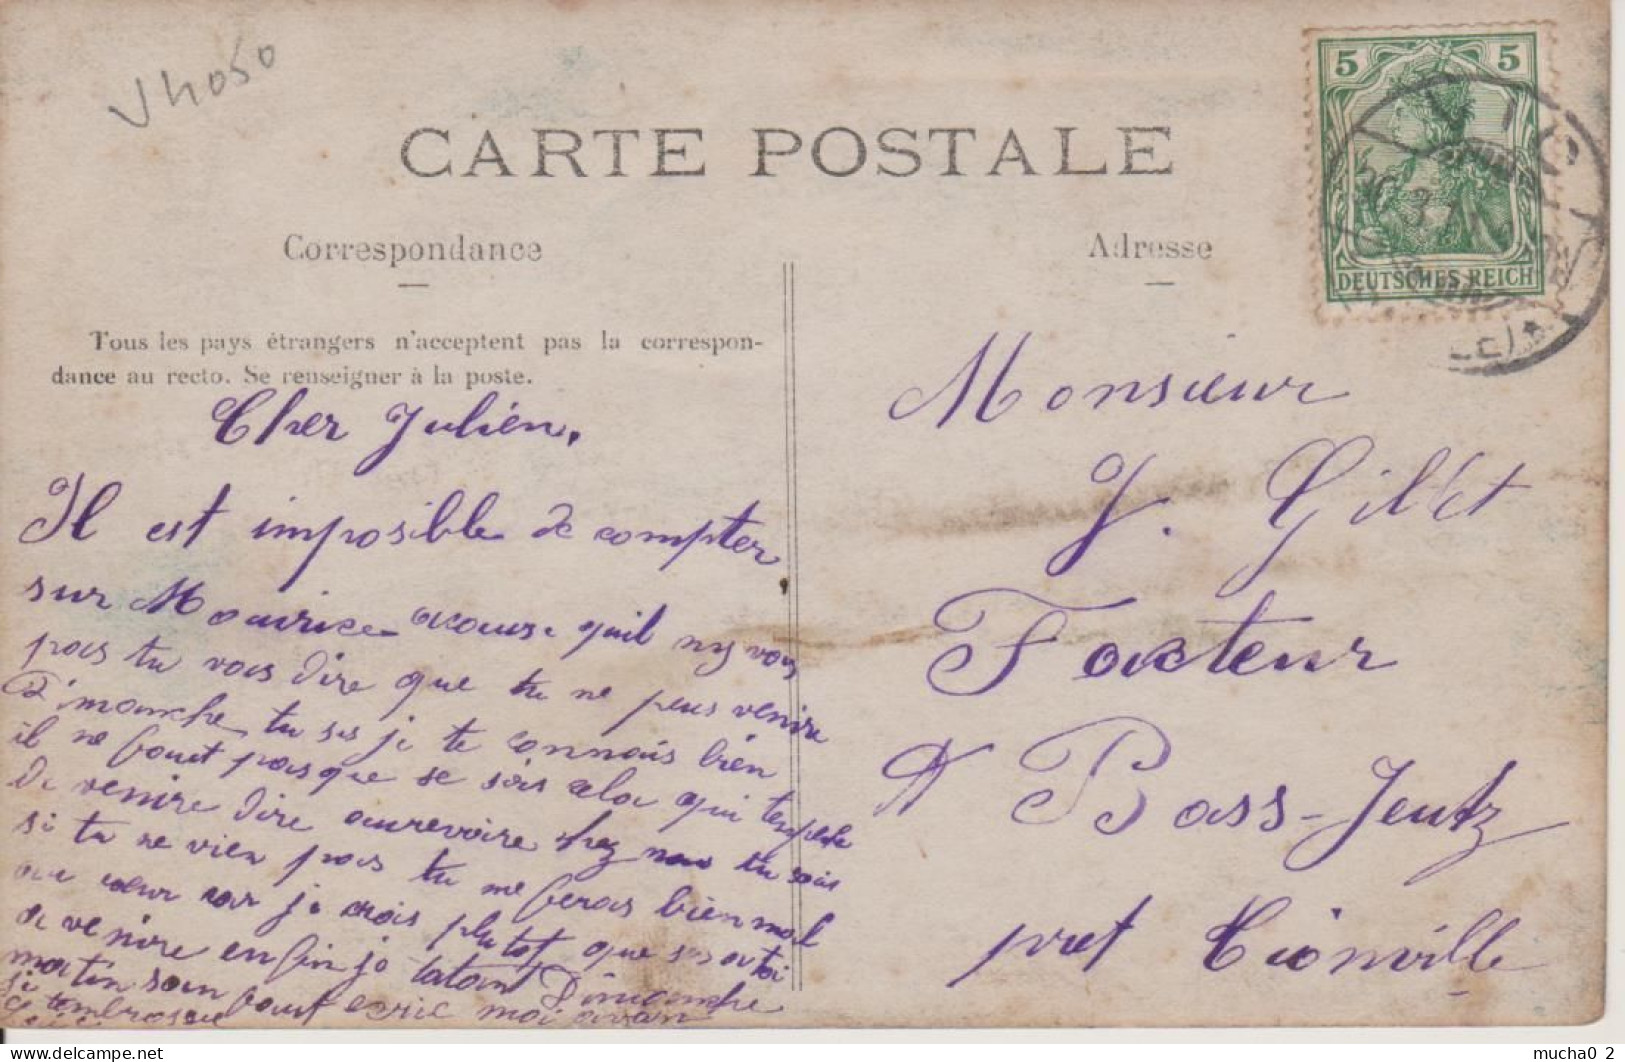 V4050
CARTE POSTALE
5 5
DEUTSCHES REICH
Correspondance
Adresse
Tous les pays étrangers n'acceptent pas la correspon-
dance au recto. Se renseigner à la poste.
Cher Julien,
Il est imposible de compter
sur Maurice quil
pas tu vas dire que tu ne peus venire
Dimanche tu sis je te connais bien
il ne fout pas que se sois cela qui
de venire dire aurevoire chez nous tu sais
si tu ne vien pas tu me feras bien mal
au cœur car je crois plutot que ses a toi
de venire enfin je tatan Dimanche
matin san fout ecric moi avan
si
tembrasse
Monsieur
J. Gillet
Facteur
A Bass-Jeutz
pret Tionville
mucha0_2